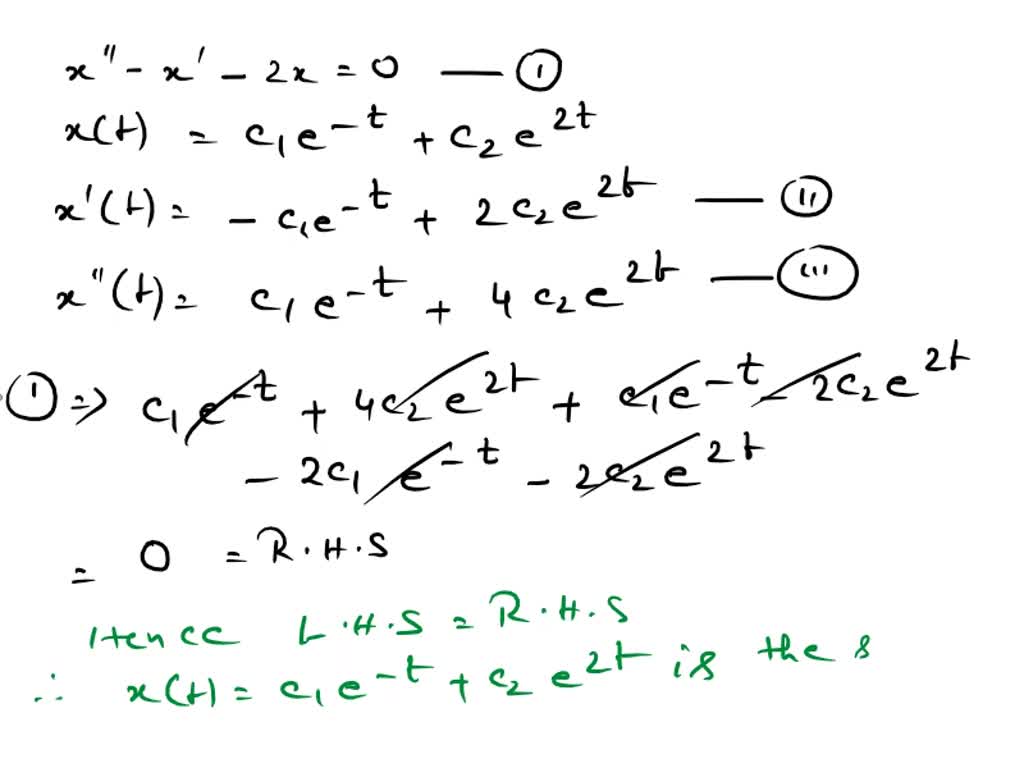 x'' - x' - 2x = 0 — (I)
x(t) = c₁e^{-t} + c₂e^{2t}
x'(t) = - c₁e^{-t} + 2c₂e^{2t} — (II)
x''(t) = c₁e^{-t} + 4c₂e^{2t} — (III)
(I) ⇒ c₁e^{-t} + 4c₂e^{2t} + c₁e^{-t} - 2c₂e^{2t}
- 2c₁e^{-t} - 2c₂e^{2t}
= 0 = R.H.S
Hence L.H.S = R.H.S
∴ x(t) = c₁e^{-t} + c₂e^{2t} is the s